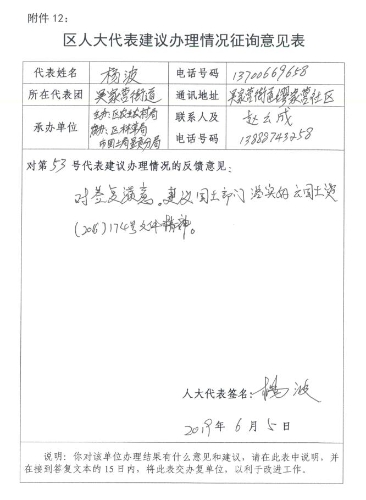 附件12：
区人大代表建议办理情况征询意见表
代表姓名 杨波 电话号码 13700669658
所在代表团 吴家营街道 通讯地址 吴家营街道缪家营社区
承办单位 主办：区农业农村局 联系人及 赵云成
协办：区林草局 电话号码 13888743258
市国土局呈贡分局
对第53号代表建议办理情况的反馈意见：
对答复满意。建议国土部门落实的云国土资
(208)174号文件精神。
人大代表签名： 杨波
2019年6月5日
说明：你对该单位办理结果有什么意见和建议，请在此表中说明，并
在接到答复文本的15日内，将此表交办复单位，以利于改进工作。